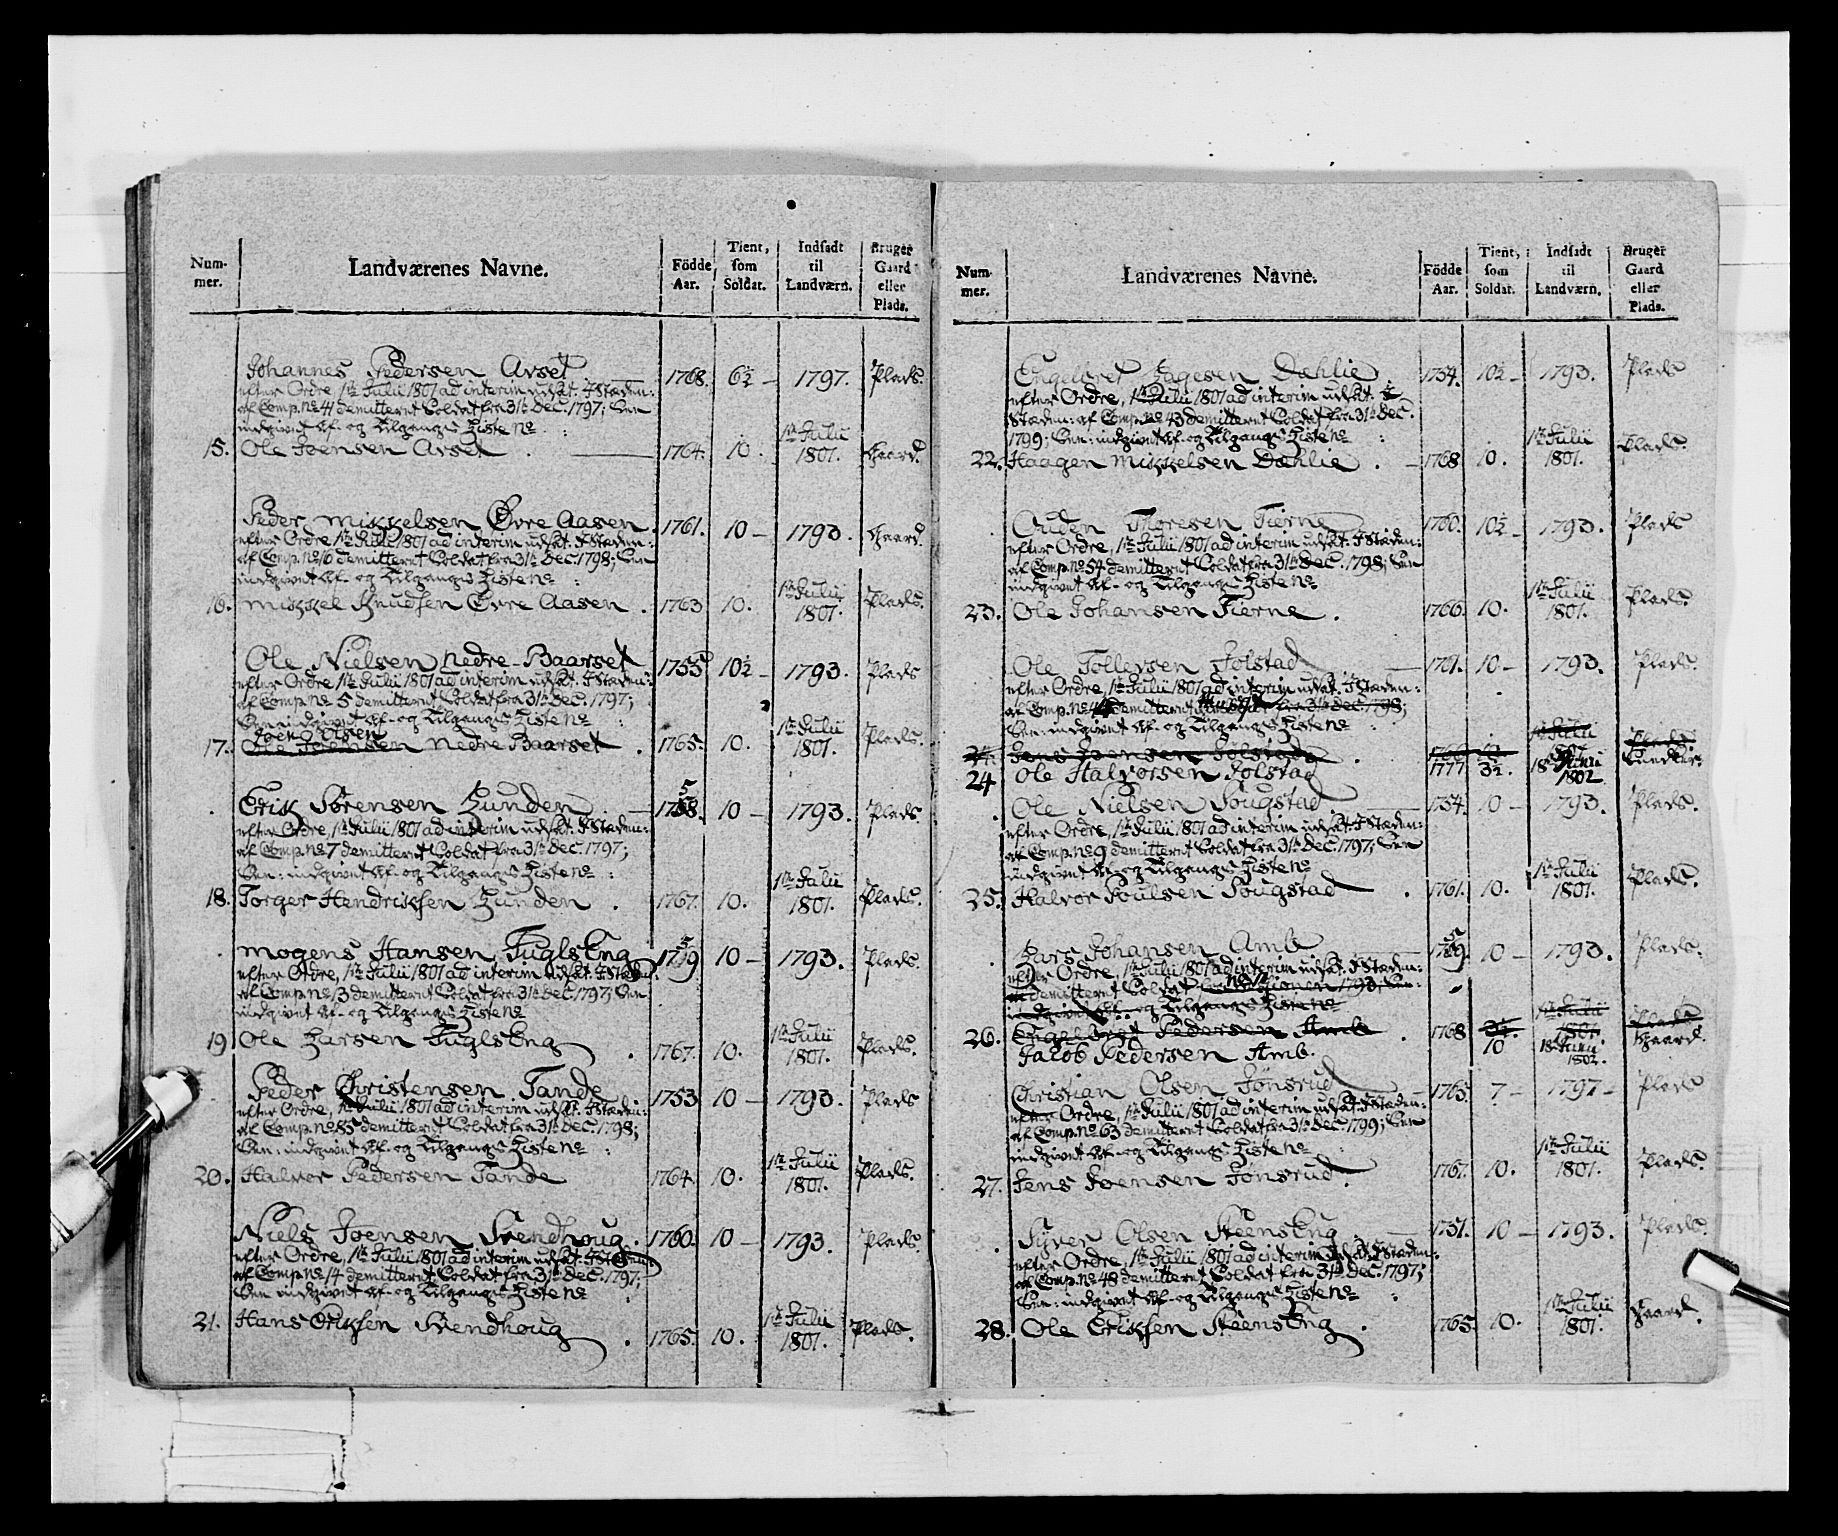 Num-
mer.
Landværenes Navne.
Födde
Aar.
Tient,
som
Soldat.
Indsadt
til
Landværn.
Bruger
Gaard
eller
Plads.
Johannes Pedersen Arset 1768. 6½ 1797. Plads.
efter Ordre, 1te Julii 1801 ad interim udsat. I Stæden:
af Comp. No 41 demitteret Soldat fra 31te Dec. 1797; See
indgivet Af- og Tilgangs Liste No
15. Ole Joensen Arset 1764. 10. 1te Julii 1801. Gaard.
Peder Mikkelsen Øvre Aasen 1761. 10 1793. Gaard.
efter Ordre 1te Julii 1801 ad interim udsat. I Stæden:
af Comp. No 16 demitteret Soldat fra 31te Dec. 1798; See
indgivet Af- og Tilgangs Liste No
16. Mikkel Knudsen Øvre Aasen 1763 10. 1te Julii 1801. Plads.
Ole Nielsen Nedre-Baarset 1755 10½ 1793. Plads
efter Ordre, 1te Julii 1801 ad interim udsat. I Stæden:
af Comp. No 5 demitteret Soldat fra 31te Dec. 1797;
See indgivet Af- og Tilgangs Liste No
Joen Olsen
17. Ole Joensen Nedre Baarset 1765. 10. 1te Julii 1801. Plads.
Erik Sörensen Lunden 1758. 10 1793. Plads.
efter Ordre, 1te Julii 1801 ad interim udsat. I Stæden:
af Comp. No 7 demitteret Soldat fra 31te Dec. 1797;
See: indgivet Af- og Tilgangs Liste No
18. Torger Hendriksen Lunden 1767. 10. 1te Julii 1801. Plads.
Mogens Hansen FuglsEng 1759 10 1793. Plads.
efter Ordre, 1te Julii 1801 ad interim udsat. I Stæden:
af Comp. No 13 demitteret Soldat fra 31te Dec. 1797; See
indgivet Af- og Tilgangs Liste No
19 Ole Larsen FuglsEng 1767. 10. 1te Julii 1801. Plads.
Peder Christensen Tande 1753 10 1793. Plads
efter Ordre, 1te Julii 1801 ad interim udsat. I Stæden:
af Comp. No 85 demitteret Soldat fra 31te Dec. 1798;
See: indgivet Af- og Tilgangs Liste No
20. Halvor Pedersen Tande 1764. 10. 1te Julii 1801. Plads.
Niels Joensen Svendhoug. 1760. 10 1793. Plads.
efter Ordre, 1te Julii 1801 ad interim udsat. I Stæden:
af Comp. No 14 demitteret Soldat fra 31te Dec. 1797;
See indgivet Af- og Tilgangs Liste No
21. Hans Eriksen Svendhoug 1765. 10. 1te Julii 1801. Plads.
Num-
mer.
Landværenes Navne.
Födde
Aar.
Tient,
som
Soldat.
Indsadt
til
Landværn.
Bruger
Gaard
eller
Plads.
Engelbret Hagesen Dæhlie 1754. 10½ 1793. Plads
efter Ordre, 1te Julii 1801 ad interim udsat. I
Stæden: af Comp. No 43 demitteret Soldat fra 31te Dec.
1799; See: indgivet Af- og Tilgangs Liste No
22. Haagen Mikkelsen Dæhlie 1768 10. 1te Julii 1801. Plads.
Ouden Thoresen Tierne 1760. 10½ 1793. Plads
efter Ordre, 1te Julii 1801 ad interim udsat. I Stæden:
af Comp. No 54 demitteret Soldat fra 31te Dec. 1798; See
indgivet Af- og Tilgangs Liste No
23. Ole Johansen Tierne 1766. 10. 1te Julii 1801. Plads.
Ole Tollevsen Jolstad 1761. 10 1793. Plads.
efter Ordre, 1te Julii 1801 ad interim udsat. I Stæden:
af Comp. No demitteret fra 31te Dec. 1798;
See: indgivet Af- og Tilgangs Liste No
24. Jens Joensen Jolstad 1te Julii
24 Ole Halvorsen Jolstad 1777. 3½. 18 Junii 1802
Ole Nielsen Sougstad 1754. 10 1793. Plads.
efter Ordre, 1te Julii 1801 ad interim udsat. I Stæden:
af Comp. No 9 demitteret Soldat fra 31te Dec. 1797; See
indgivet Af- og Tilgangs Liste No
25. Halvor Poulsen Sougstad 1761. 10. 1te Julii 1801. Plads.
Lars Johansen Amb 1759. 10 1793. Plads.
efter Ordre, 1te Julii 1801 ad interim udsat. I Stæden:
demitteret Soldat 1793; See:
indgivet Af- og Tilgangs Liste No
26. Engelbret Pedersen Amb 1768 1te Julii 1801. Plads
Jacob Pedersen Amb. 10 18 Junii 1802. Gaard.
Christian Olsen Jönsrud 1765. 7 1797 Plads
efter Ordre, 1te Julii 1801 ad interim udsat. I Stæden:
af Comp. No 63 demitteret Soldat fra 31te Dec. 1799; See
indgivet Af- og Tilgangs Liste No
27. Jens Joensen Jönsrud. 1767. 10. 1te Julii 1801. Plads.
Syver Olsen SteensEng 1751. 10 1793. Plads.
efter Ordre, 1te Julii 1801 ad interim udsat. I Stæden:
af Comp. No 48 demitteret Soldat fra 31te Dec. 1797;
See: indgivet Af- og Tilgangs Liste No
28. Ole Eriksen SteensEng 1765. 10. 1te Julii 1801. Gaard.